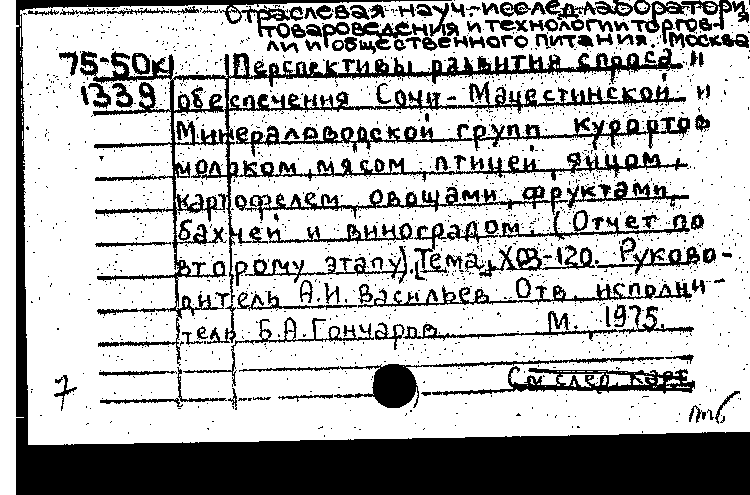 Отраслевая науч-исслед. лаборатория
товароведения и технологии торгов-
ли и общественного питания. Москва
75-50к Перспективы развития спроса и
1339 обеспечения Сочи-Мацестинской и
Минераловодской групп курортов
молоком, мясом, птицей, яйцом,
картофелем, овощами, фруктами,
бахчей и виноградом. (Отчет по
второму этапу). Тема ХОЗ-120. Руково-
дитель А.И. Васильев Отв. исполни-
тель Б.А. Гончаров М., 1975.
См след. карт
7